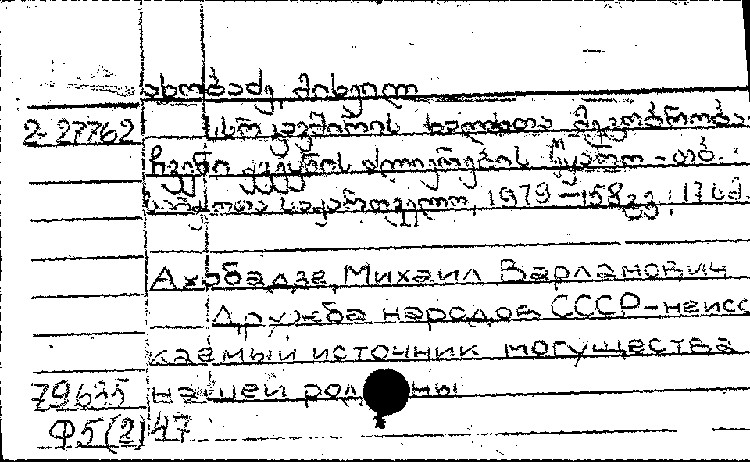 ახობაძე, მიხეილ
2-27762 სსრ კავშირის ხალხთა მეგობრობა-
ჩვენი ქვეყნის ძლიერების წყარო.-თბ.:
საბჭოთა საქართველო, 1979-158გვ; 17სმ.
Ахобадзе, Михаил Варланович
Дружба народов СССР-неисс
каемый источник могущества
79635 нашей родины
Ф5(2)47